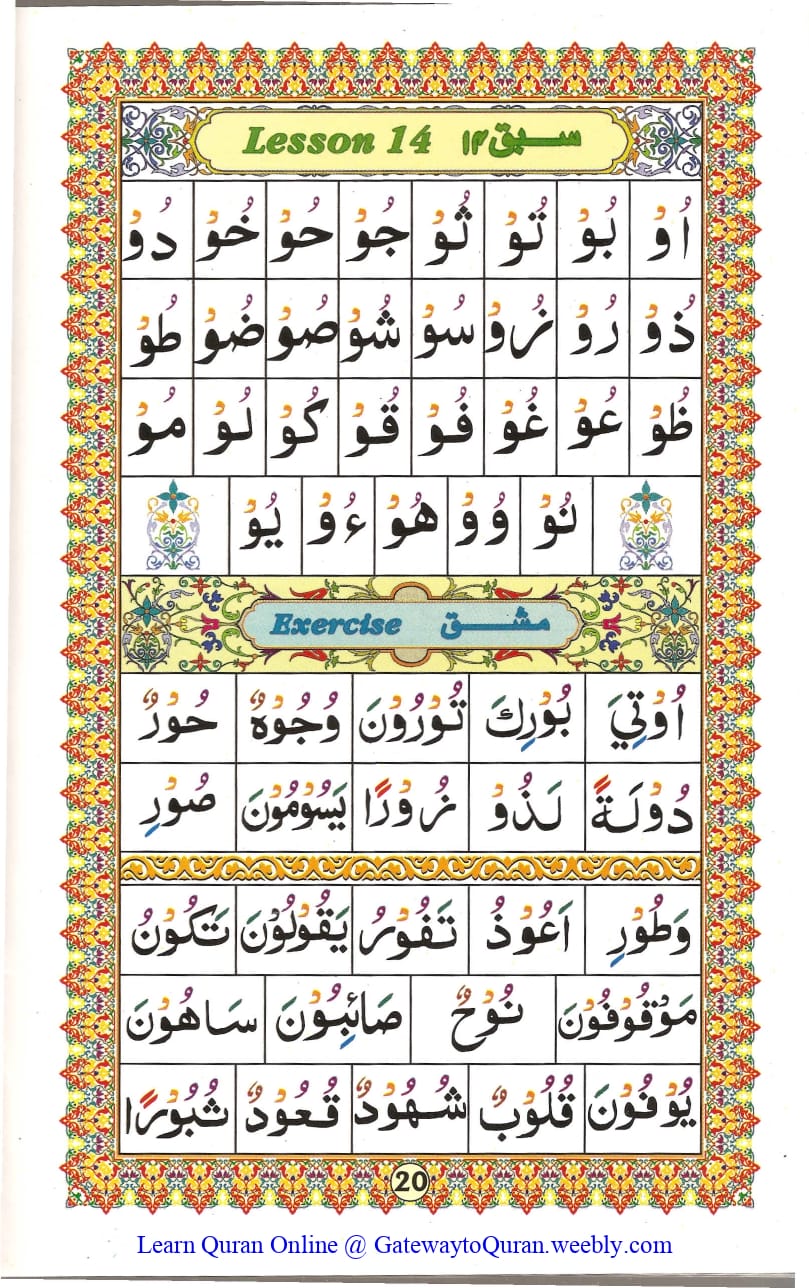 Lesson 14 سبق ۱۴
اُوْ بُوْ تُوْ ثُوْ جُوْ حُوْ خُوْ دُوْ
ذُوْ رُوْ زُوْ سُوْ شُوْ صُوْ ضُوْ طُوْ
ظُوْ عُوْ غُوْ فُوْ قُوْ كُوْ لُوْ مُوْ
نُوْ وُوْ هُوْ ءُوْ يُوْ
Exercise مشق
اُوْتِيَ بُوْرِكَ تُوْرُوْنَ وُجُوْهٌ حُوْرٌ
دُوْلَةً لَذُوْ زُوْرًا يَسُوْمُوْنَ صُوْرِ
وَطُوْرِ اَعُوْذُ تَفُوْرُ يَقُوْلُوْنَ تَكُوْنُ
مَوْقُوْفُوْنَ نُوْحٌ صَائِبُوْنَ سَاهُوْنَ
يُوْفُوْنَ قُلُوْبٌ شُهُوْدٌ قُعُوْدٌ ثُبُوْرًا
20
Learn Quran Online @ GatewaytoQuran.weebly.com